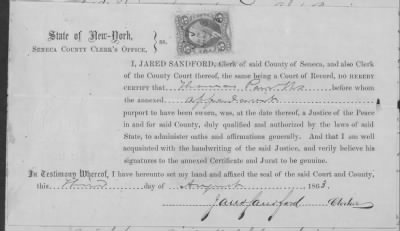 State of New-York,
Seneca County Clerk's Office, } ss.
I, JARED SANDFORD, Clerk of said County of Seneca, and also Clerk
of the County Court thereof, the same being a Court of Record, DO HEREBY
CERTIFY that Thomas before whom
the annexed
purport to have been sworn, was, at the date thereof, a Justice of the Peace
in and for said County, duly qualified and authorized by the laws of said
State, to administer oaths and affirmations generally. And that I am well
acquainted with the handwriting of the said Justice, and verily believe his
signatures to the annexed Certificate and Jurat to be genuine.
In Testimony Whereof, I have hereunto set my hand and affixed the seal of the said Court and County,
this Third day of August 1863.
Jared Sandford Clerk